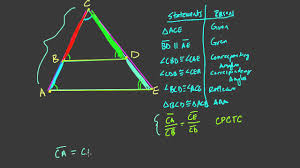 C
Statements Reason
△ACE Given
B D
BD ∥ AE Given
∠CBD ≅ ∠CAE Corresponding Angles
∠CDB ≅ ∠CEA Corresponding Angles
A E
∠BCD ≅ ∠BCD Reflexive
△BCD ~ △ACE AAA
CA/CB = CE/CD CPCTC
CA = C